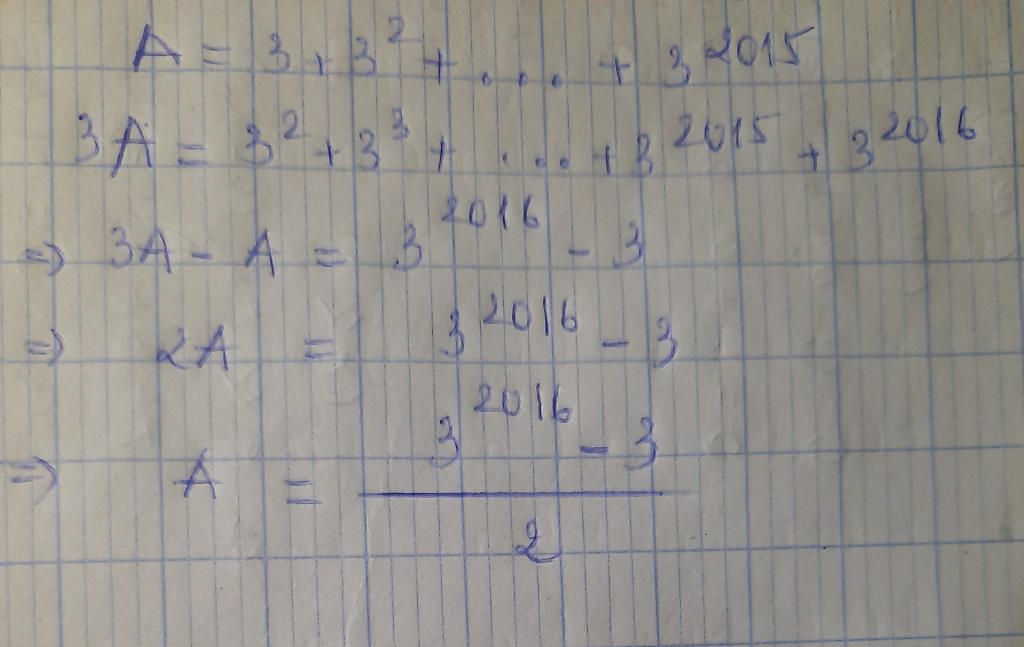 A = 3 + 3² + .... + 3²⁰¹⁵
3A = 3² + 3³ + .... + 3²⁰¹⁵ + 3²⁰¹⁶
⇒ 3A - A = 3²⁰¹⁶ - 3
⇒ 2A = 3²⁰¹⁶ - 3
⇒ A = \frac{3²⁰¹⁶ - 3}{2}